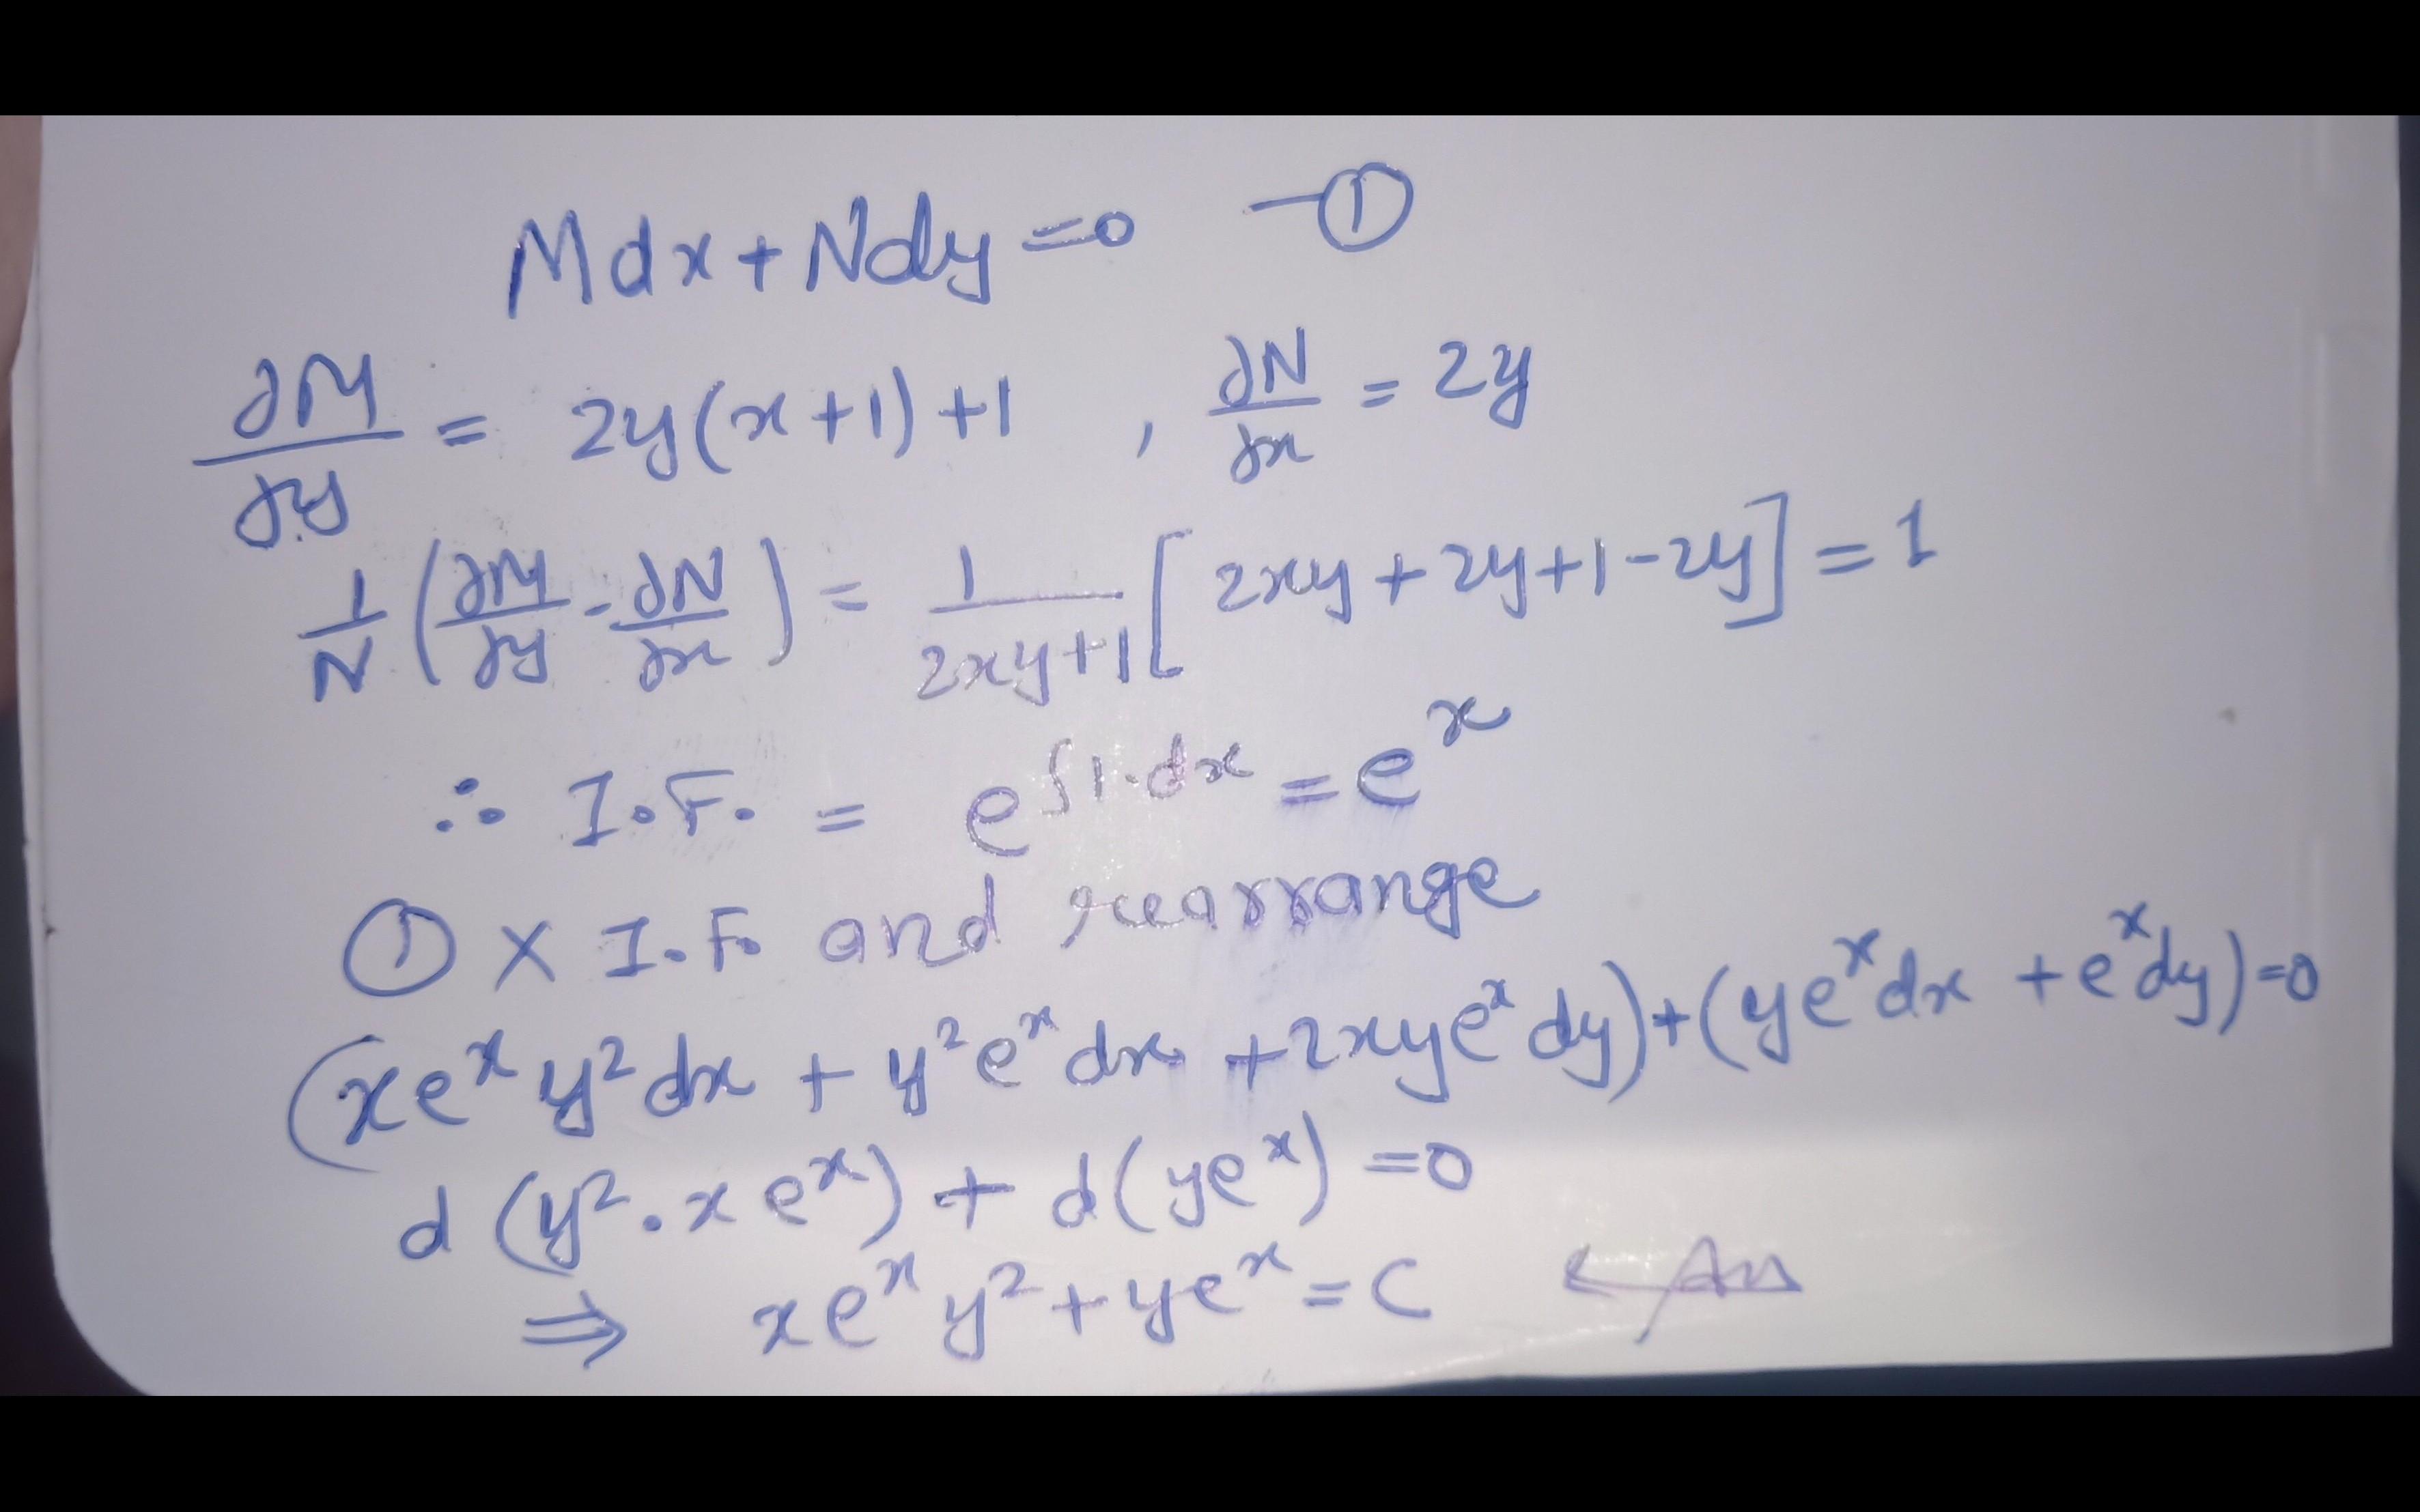 Mdx + Ndy = 0 — ①
∂M/∂y = 2y(x+1)+1 , ∂N/∂x = 2y
1/N (∂M/∂y - ∂N/∂x) = 1/(2xy+1) [2xy + 2y + 1 - 2y] = 1
∴ I.F. = e^∫1.dx = e^x
① × I.F. and rearrange
(xe^x y² dx + y² e^x dx + 2xye^x dy) + (ye^x dx + e^x dy) = 0
d(y² . x e^x) + d(ye^x) = 0
⇒ xe^x y² + ye^x = C ← Ans